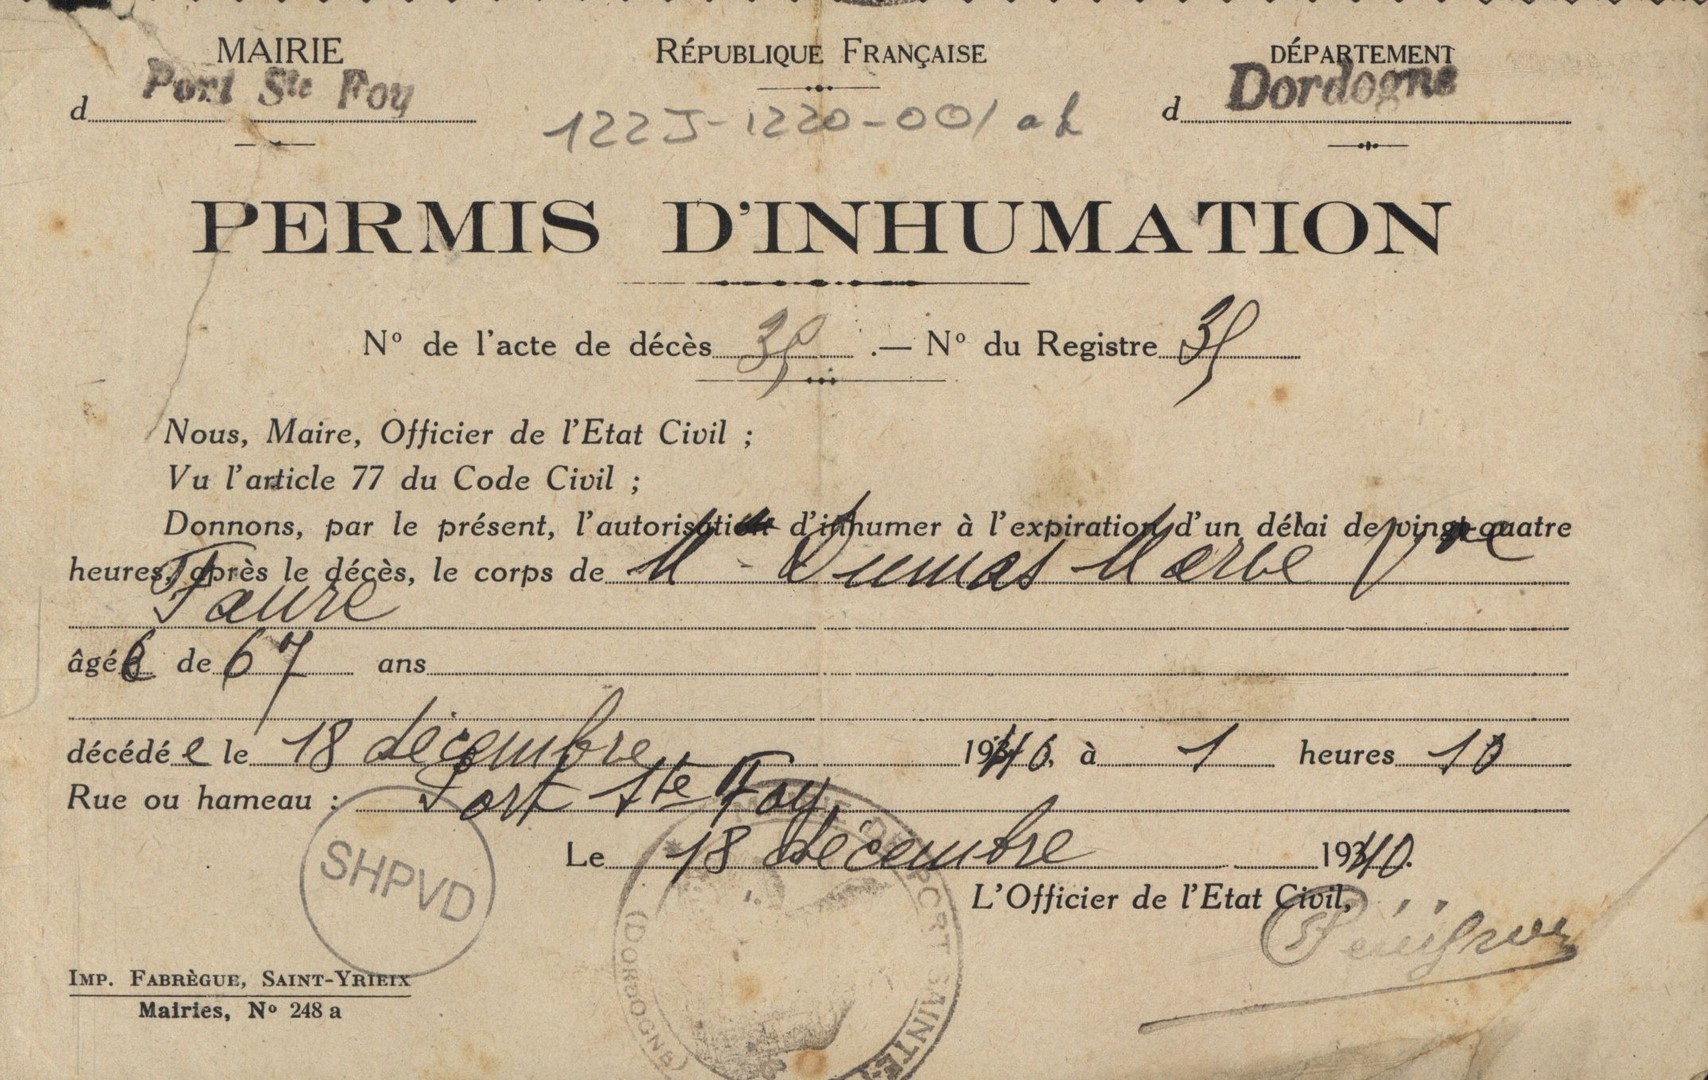 MAIRIE
d Port Ste Foy
RÉPUBLIQUE FRANÇAISE
122J-1220-001 a h
DÉPARTEMENT
d Dordogne
PERMIS D'INHUMATION
N° de l'acte de décès 35 .— N° du Registre 35
Nous, Maire, Officier de l'Etat Civil ;
Vu l'article 77 du Code Civil ;
Donnons, par le présent, l'autorisation d'inhumer à l'expiration d'un délai de vingt-quatre
heures, après le décès, le corps de M Dumas Vve
Faure
âgée de 67 ans
décédée le 18 décembre 1940. à 1 heures 10
Rue ou hameau : Port Ste Foy
Le 18 décembre 1940.
L'Officier de l'Etat Civil,
SHPVD
MAIRIE DE PORT SAINTE
(DORDOGNE)
IMP. FABRÈGUE, SAINT-YRIEIX
Mairies, N° 248 a